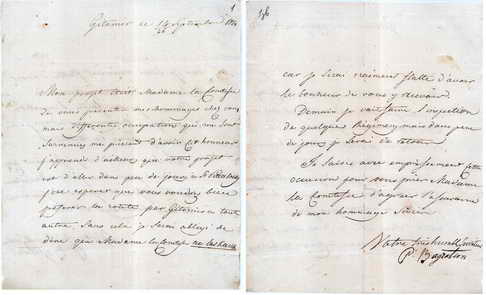 Gitomir ce 14 septembre
26
Mon projet étoit Madame la Comtesse
de vous présenter mes hommages chez vous
mais differentes occupations qui me sont
survenues me privent d'avoir cet honneur
j'aprends d'ailleurs que votre projet
est d'aller dans peu de jours à
j'ose esperer que vous voudrez bien
préferer la route par Gitomir à toute
autre. Sans cela je serai obligé de
dire que Madame la Comtesse
car je serai vraiment flatté d'avoir
le bonheur de vous y recevoir.
Demain je vais faire l'inspection
de quelques Régimens mais dans peu
de jours je serai de retour.
Je saisis avec empressement cette
occasion pour vous prier Madame
la Comtesse d'agréer l'assurance
de mon hommage
Votre
P. Bagration